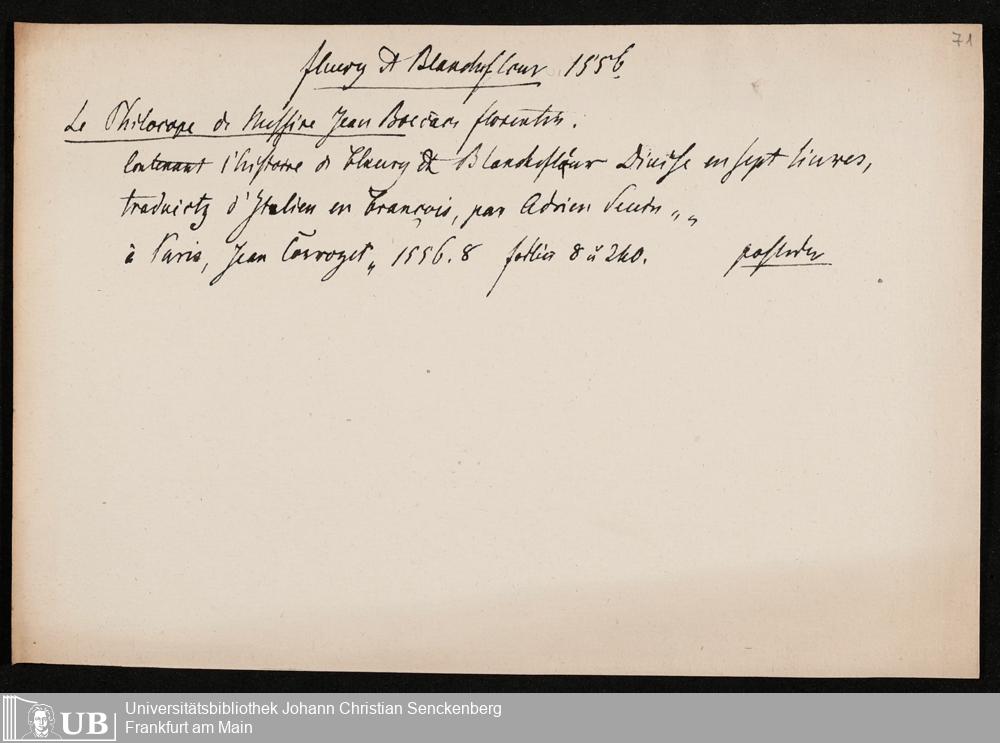 71
fleury et Blanchefleur 1556
Le Philocope de Messire Jean Boccace florentin.
Contenant l'histoire de fleury et Blanchefleur Diuise en sept liures,
traduictz d'Italien en françois, par Adrien Seuin „ „
à Paris, Jean Corrozet „ 1556. 8 8 u 240.
UB
Universitätsbibliothek Johann Christian Senckenberg
Frankfurt am Main